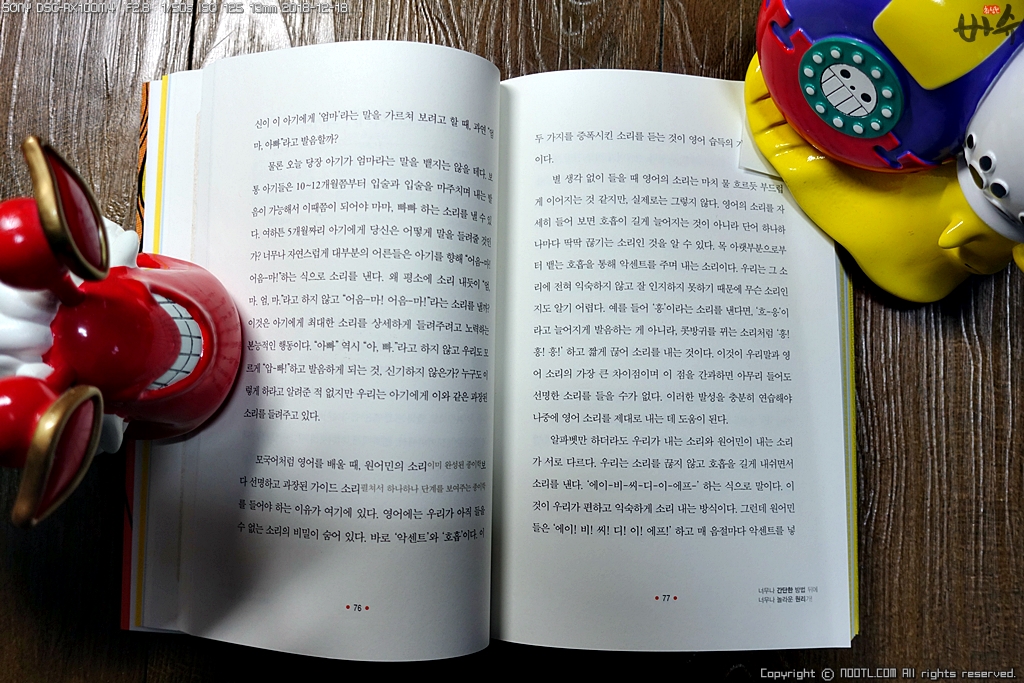 SONY DSC-RX100M4 / F2.8 1/50s ISO 125 13mm 2018-12-18
바슈
신이 이 아기에게 '엄마'라는 말을 가르쳐 보려고 할 때, 과연 "엄
마, 아빠"라고 발음할까?
물론 오늘 당장 아기가 엄마라는 말을 뱉지는 않을 테다. 보
통 아기들은 10~12개월쯤부터 입술과 입술을 마주치며 내는 발
음이 가능해서 이때쯤이 되어야 마마, 빠빠 하는 소리를 낼 수 있
다. 여하튼 5개월짜리 아기에게 당신은 어떻게 말을 들려줄 것인
가? 너무나 자연스럽게 대부분의 어른들은 아기를 향해 "어음-마!
어음-마!"하는 식으로 소리를 낸다. 왜 평소에 소리 내듯이 "엄,
마. 엄, 마."라고 하지 않고 "어음-마! 어음-마!"라는 소리를 낼까?
이것은 아기에게 최대한 소리를 상세하게 들려주려고 노력하는
본능적인 행동이다. "아빠" 역시 "아, 빠."라고 하지 않고 우리도 모
르게 "압-빠!"하고 발음하게 되는 것, 신기하지 않은가? 누구도 이
렇게 하라고 알려준 적 없지만 우리는 아기에게 이와 같은 과장된
소리를 들려주고 있다.
모국어처럼 영어를 배울 때, 원어민의 소리이미 완성된 종이학보
다 선명하고 과장된 가이드 소리펼쳐서 하나하나 단계를 보여주는 종이학
를 들어야 하는 이유가 여기에 있다. 영어에는 우리가 아직 들을
수 없는 소리의 비밀이 숨어 있다. 바로 '악센트'와 '호흡'이다. 이
76
두 가지를 증폭시킨 소리를 듣는 것이 영어 습득의
이다.
별 생각 없이 들을 때 영어의 소리는 마치 물 흐르듯 부드럽
게 이어지는 것 같지만, 실제로는 그렇지 않다. 영어의 소리를 자
세히 들어 보면 호흡이 길게 늘어지는 것이 아니라 단어 하나하
나마다 딱딱 끊기는 소리인 것을 알 수 있다. 목 아랫부분으로부
터 뱉는 호흡을 통해 악센트를 주며 내는 소리이다. 우리는 그 소
리에 전혀 익숙하지 않고 잘 인지하지 못하기 때문에 무슨 소리인
지도 알기 어렵다. 예를 들어 '흥'이라는 소리를 낸다면, '흐-응'이
라고 늘어지게 발음하는 게 아니라, 콧방귀를 뀌는 소리처럼 '흥!
흥! 흥!' 하고 짧게 끊어 소리를 내는 것이다. 이것이 우리말과 영
어 소리의 가장 큰 차이점이며 이 점을 간과하면 아무리 들어도
선명한 소리를 들을 수가 없다. 이러한 발성을 충분히 연습해야
나중에 영어 소리를 제대로 내는 데 도움이 된다.
알파벳만 하더라도 우리가 내는 소리와 원어민이 내는 소리
가 서로 다르다. 우리는 소리를 끊지 않고 호흡을 길게 내쉬면서
소리를 낸다. '에이-비-씨-디-이-에프-' 하는 식으로 말이다. 이
것이 우리가 편하고 익숙하게 소리 내는 방식이다. 그런데 원어민
들은 '에이! 비! 씨! 디! 이! 에프!' 하고 매 음절마다 악센트를 넣
77
너무나 간단한 방법 뒤에
너무나 놀라운 원리가!
Copyright ⓒ NOOTL.COM All rights reserved.